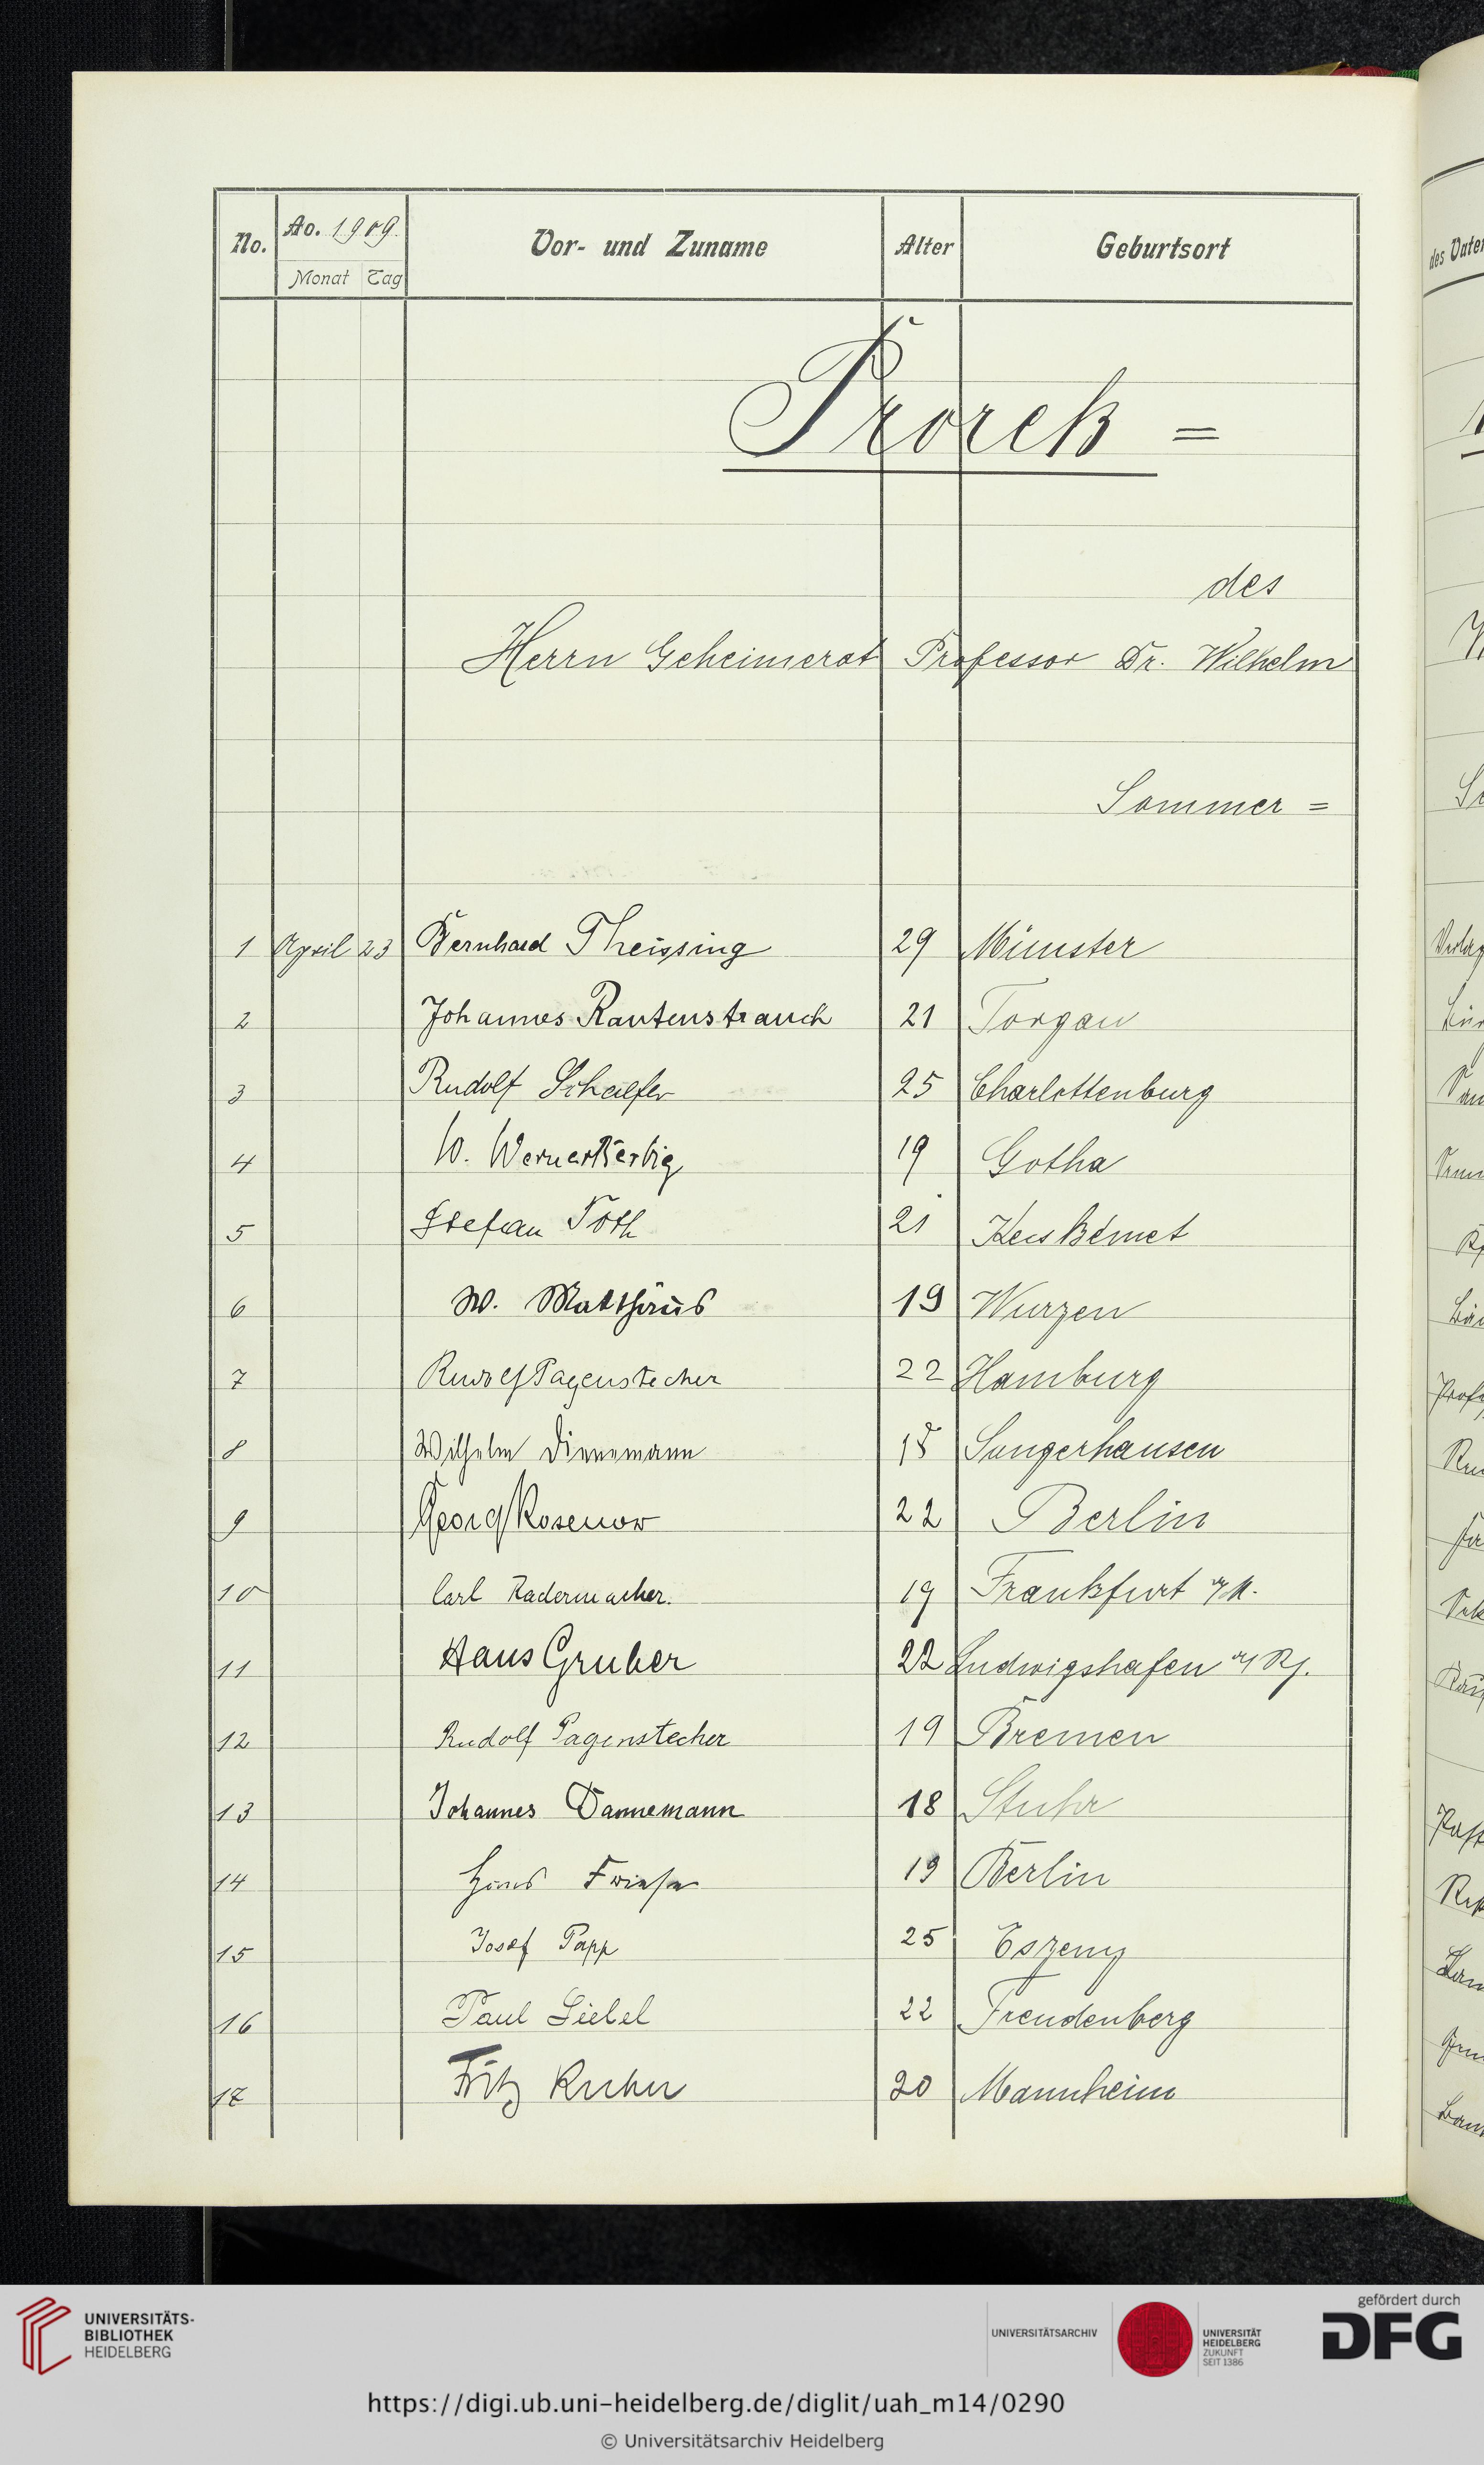 No. Ao. 1909. Vor- und Zuname Alter Geburtsort
Monat Tag
Prorek =
des
Herrn Geheimerat Professor Dr. Wilhelm
Sommer =
1 April 23 Bernhard Theissing 29 Münster
2 Johannes Rautenstrauch 21 Torgau
3 Rudolf Schaefer 25 Charlottenburg
4 W. Werner Kerbig 19 Gotha
5 Stefan Toth 21 Kecskémet
6 W. Matthäus 19 Wurzen
7 Rudolf Pagenstecher 22 Hamburg
8 Wilhelm Dinnemann 18 Sangerhausen
9 Georg Rosenow 22 Berlin
10 Carl Radermacher. 19 Frankfurt a/M.
11 Hans Gruber 22 Ludwigshafen a/Rh.
12 Rudolf Pagenstecher 19 Bremen
13 Johannes Dannemann 18 Stuhr
14 Hans Friese 19 Berlin
15 Josef Papp 25 Eszeny
16 Paul Siebel 22 Freudenberg
17 Fritz 20 Mannheim
UNIVERSITÄTS-
BIBLIOTHEK
HEIDELBERG
UNIVERSITÄTSARCHIV
UNIVERSITÄT
HEIDELBERG
ZUKUNFT
SEIT 1386
gefördert durch
DFG
https://digi.ub.uni-heidelberg.de/diglit/uah_m14/0290
© Universitätsarchiv Heidelberg